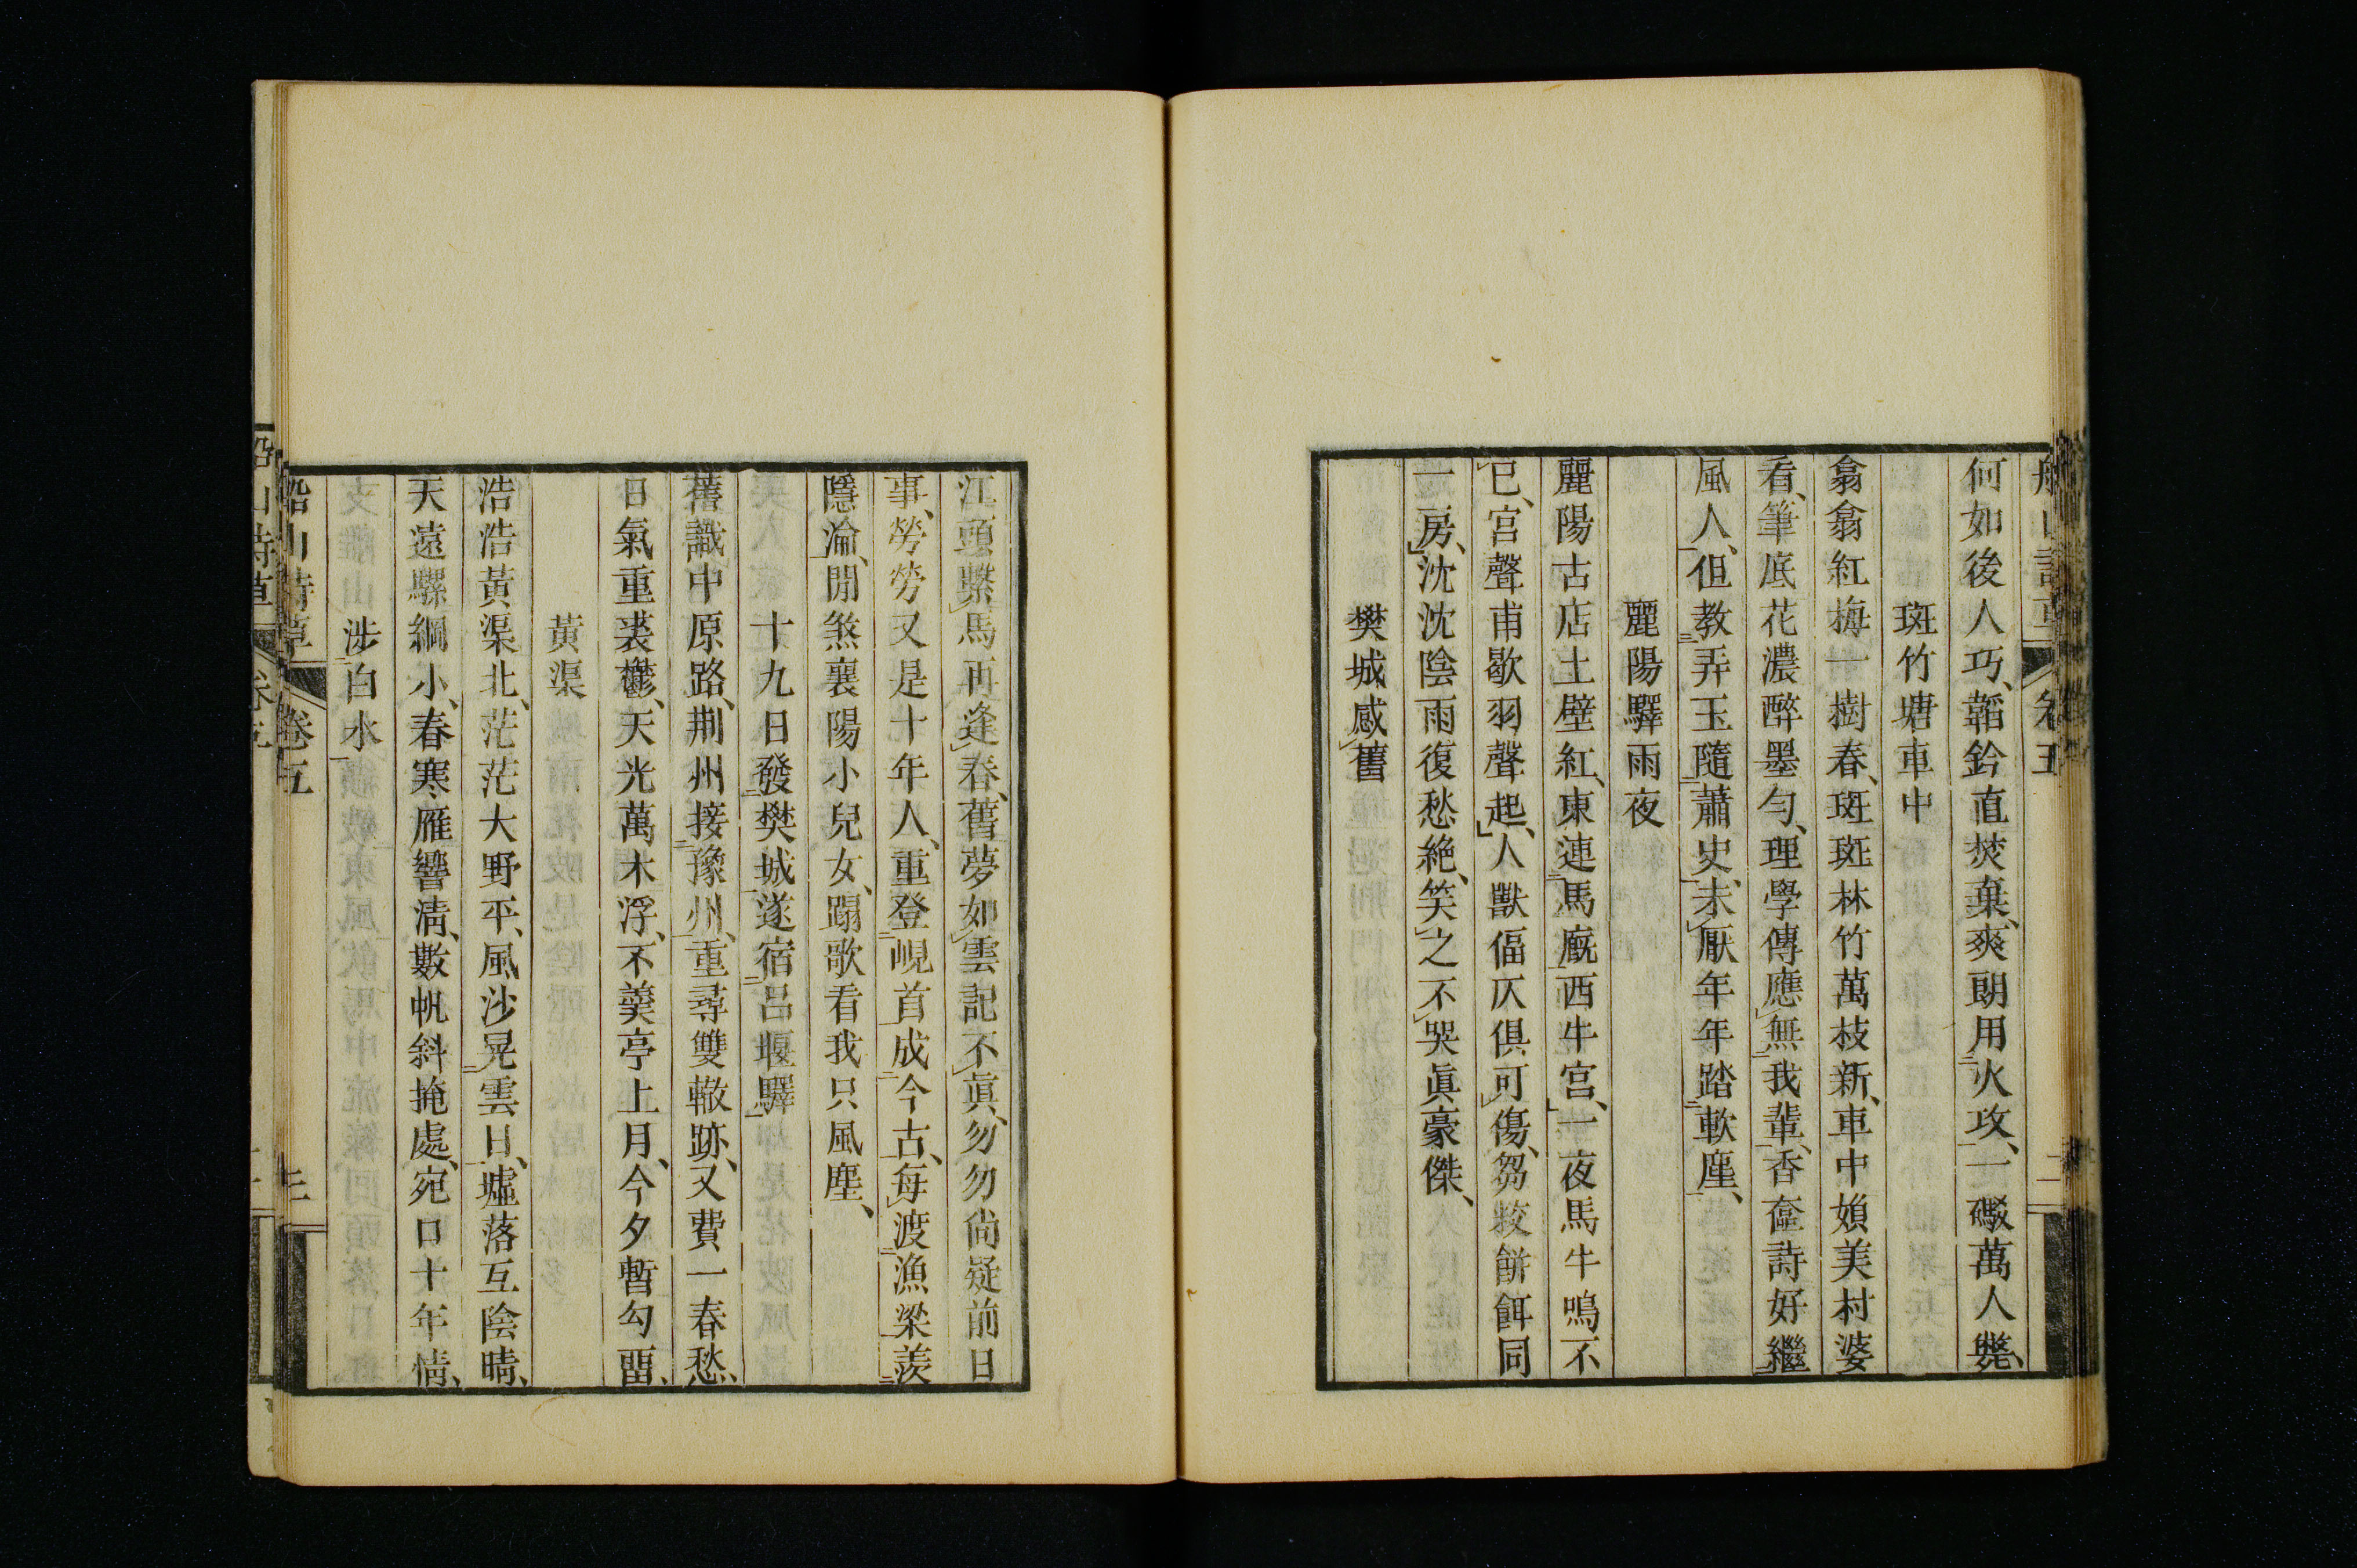 船山詩草 卷五 二
何如後人巧、韜鈐直焚棄、爽朗用火攻、一礮萬人斃、
斑竹塘車中
翕翕紅梅一樹春、斑斑林竹萬枝新、車中嬪美村婆
看、筆底花濃醉墨勻、理學傳應無我輩、香奩詩好繼
風人、但教弄玉隨蕭史、未厭年年踏軟塵、
麗陽驛雨夜
麗陽古店土壁紅、東連馬廄西牛宮、一夜馬牛鳴不
已、宮聲甫歇羽聲起、人獸偪仄俱可傷、芻豢餅餌同
一房、沈沈陰雨復愁絶、笑之不哭眞豪傑、
樊城感舊
江頭繫馬再逢春、舊夢如雲記不眞、勿勿尙疑前日
事、勞勞又是十年人、重登峴首成今古、每渡漁梁羨
隱淪、閒煞襄陽小兒女、蹋歌看我只風塵、
十九日發樊城遂宿呂堰驛
舊識中原路、荆州接豫州、重尋雙轍跡、又費一春愁、
日氣重裘鬱、天光萬木浮、不羹亭上月、今夕暫勾畱、
黃渠
浩浩黃渠北、茫茫大野平、風沙晃雲日、墟落互陰晴、
天遠騾綱小、春寒雁響淸、數帆斜掩處、宛口十年情、
涉白水
船山詩草 卷五 三